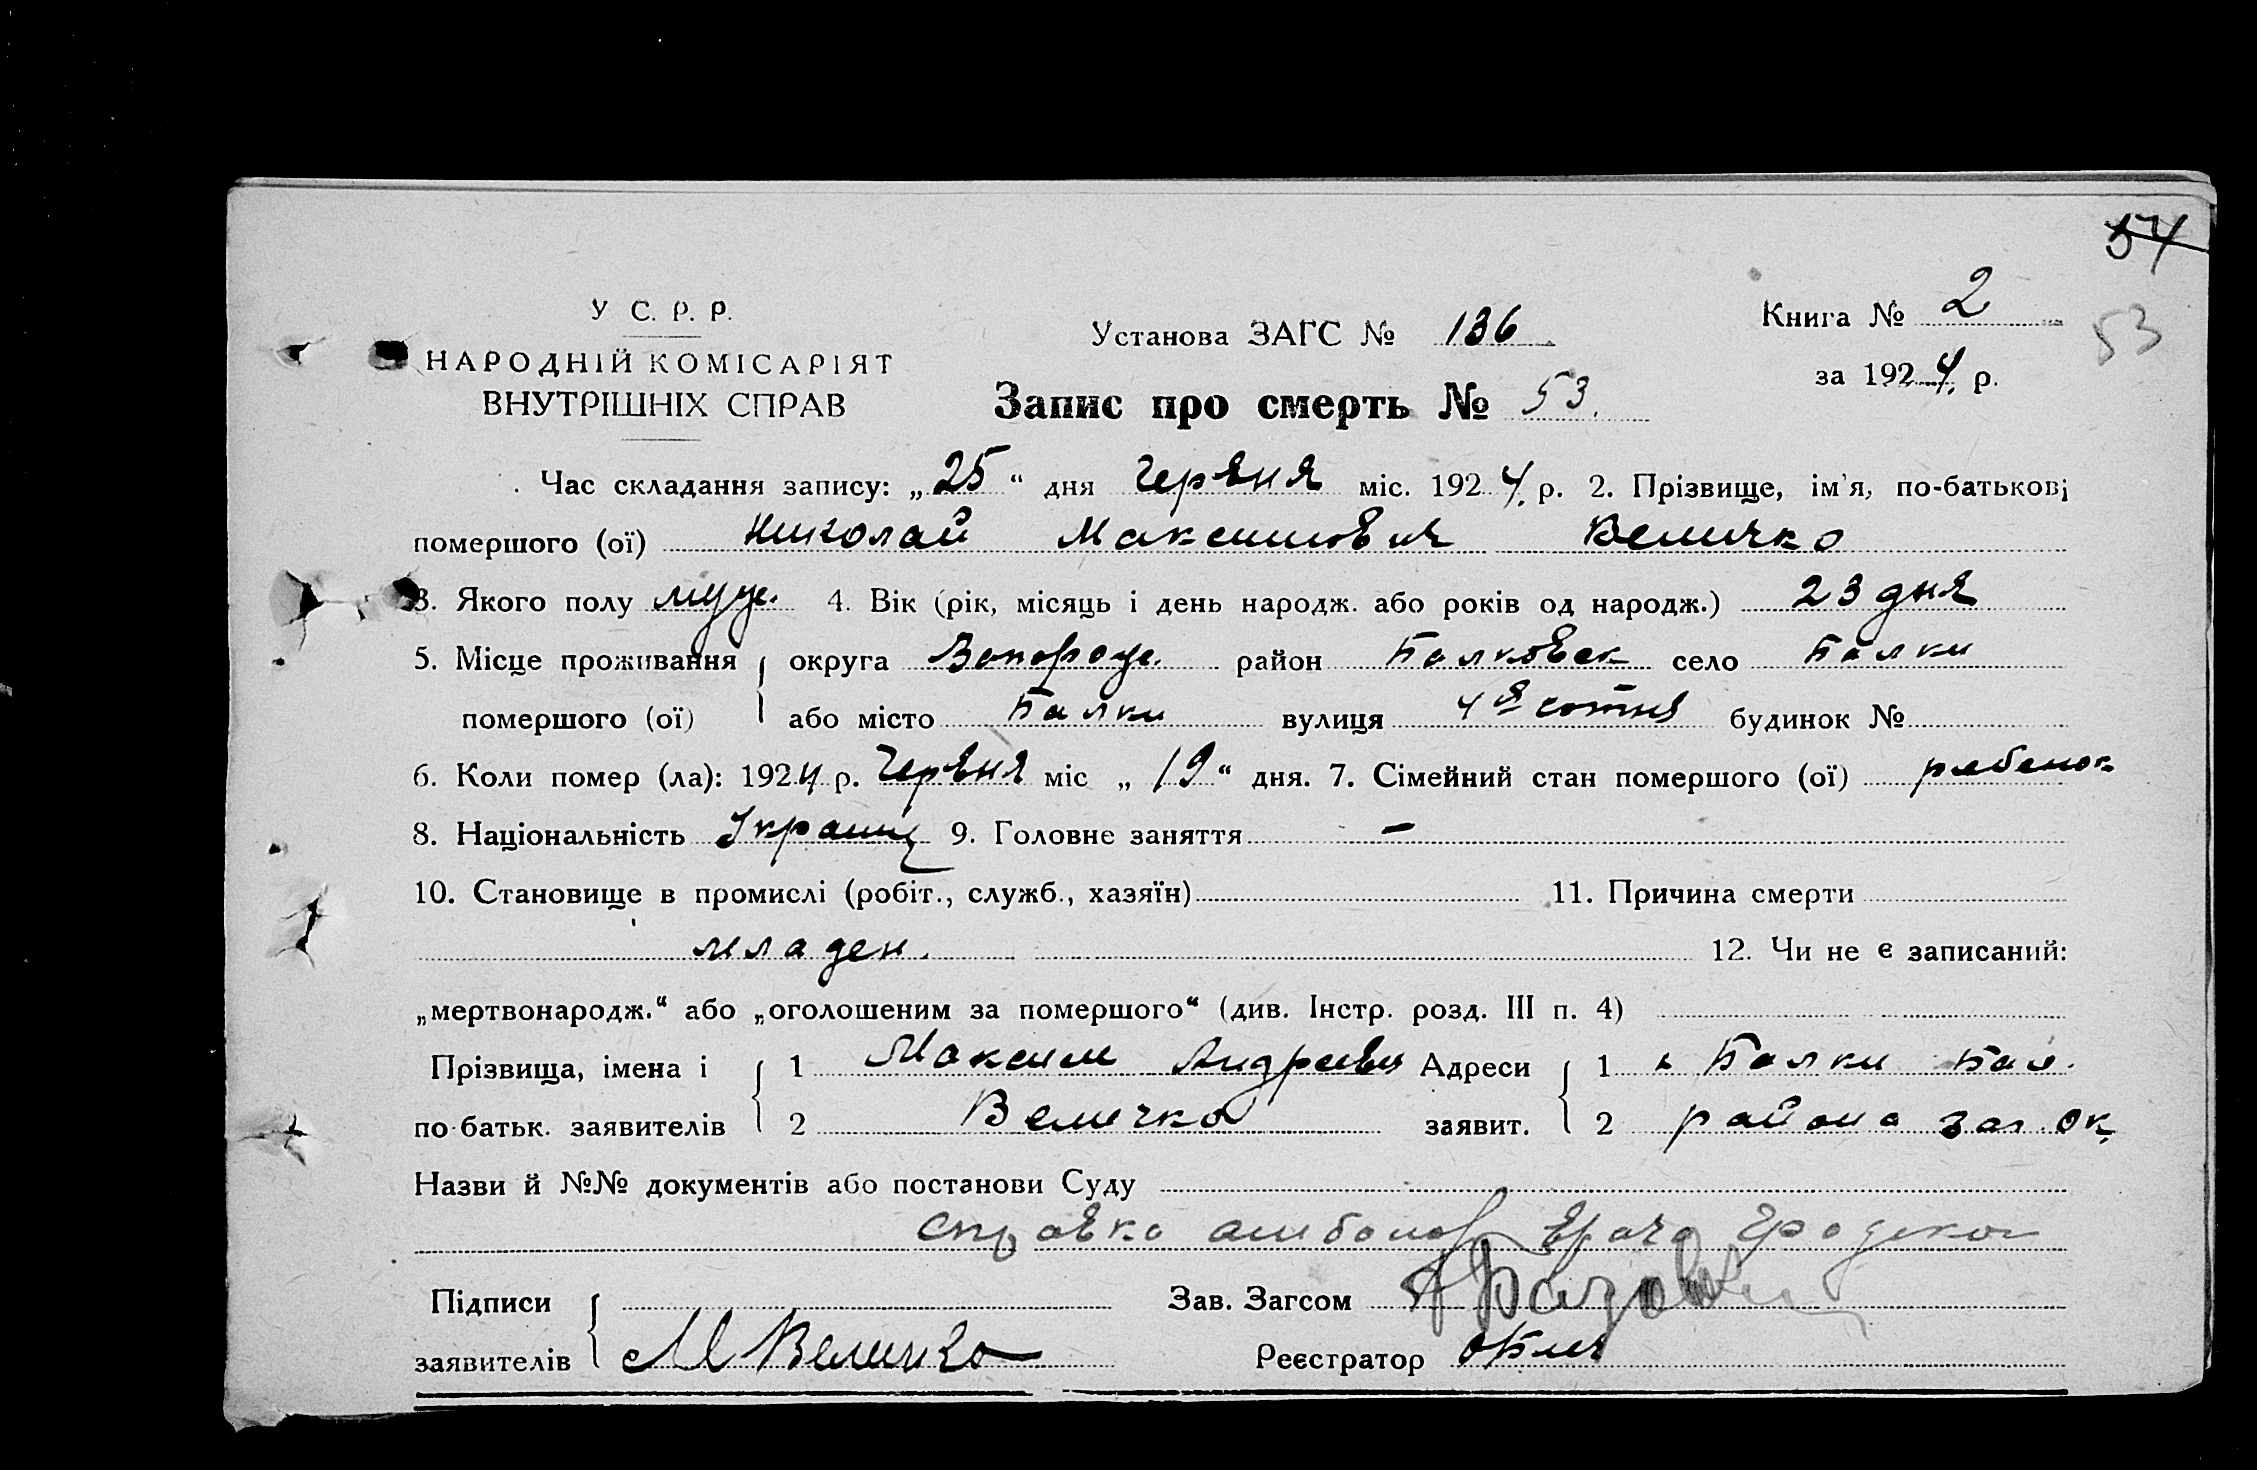 54
У С. Р. Р.
НАРОДНІЙ КОМІСАРІЯТ
ВНУТРІШНІХ СПРАВ
Установа ЗАГС № 136
Запис про смерть № 53.
Книга № 2
за 1924 р.
53
Час складання запису: „25“ дня Червня міс. 1924 р. 2. Прізвище, ім'я, по-батькові
помершого (ої) Николай Максимович Величко
3. Якого полу муж. 4. Вік (рік, місяць і день народж. або років од народж.) 23 дня
5. Місце проживання округа Запорож. район Балковск село Балки
помершого (ої) або місто Балки вулиця 4я сотня будинок №
6. Коли помер (ла): 1924 р. Червня міс „19“ дня. 7. Сімейний стан помершого (ої) ребенок
8. Національність Украинц 9. Головне заняття –
10. Становище в промислі (робіт., служб., хазяїн) 11. Причина смерти
младен. 12. Чи не є записаний:
„мертвонародж.“ або „оголошеним за помершого“ (див. Інстр. розд. III п. 4)
Прізвища, імена і 1 Максим Андреевич Адреси 1 Балки Бал.
по-батьк. заявителів 2 Величко заявит. 2 района зап. ок.
Назви й №№ документів або постанови Суду
справка амбулатор врача
Підписи Зав. Загсом
заявителів М Величко Реєстратор